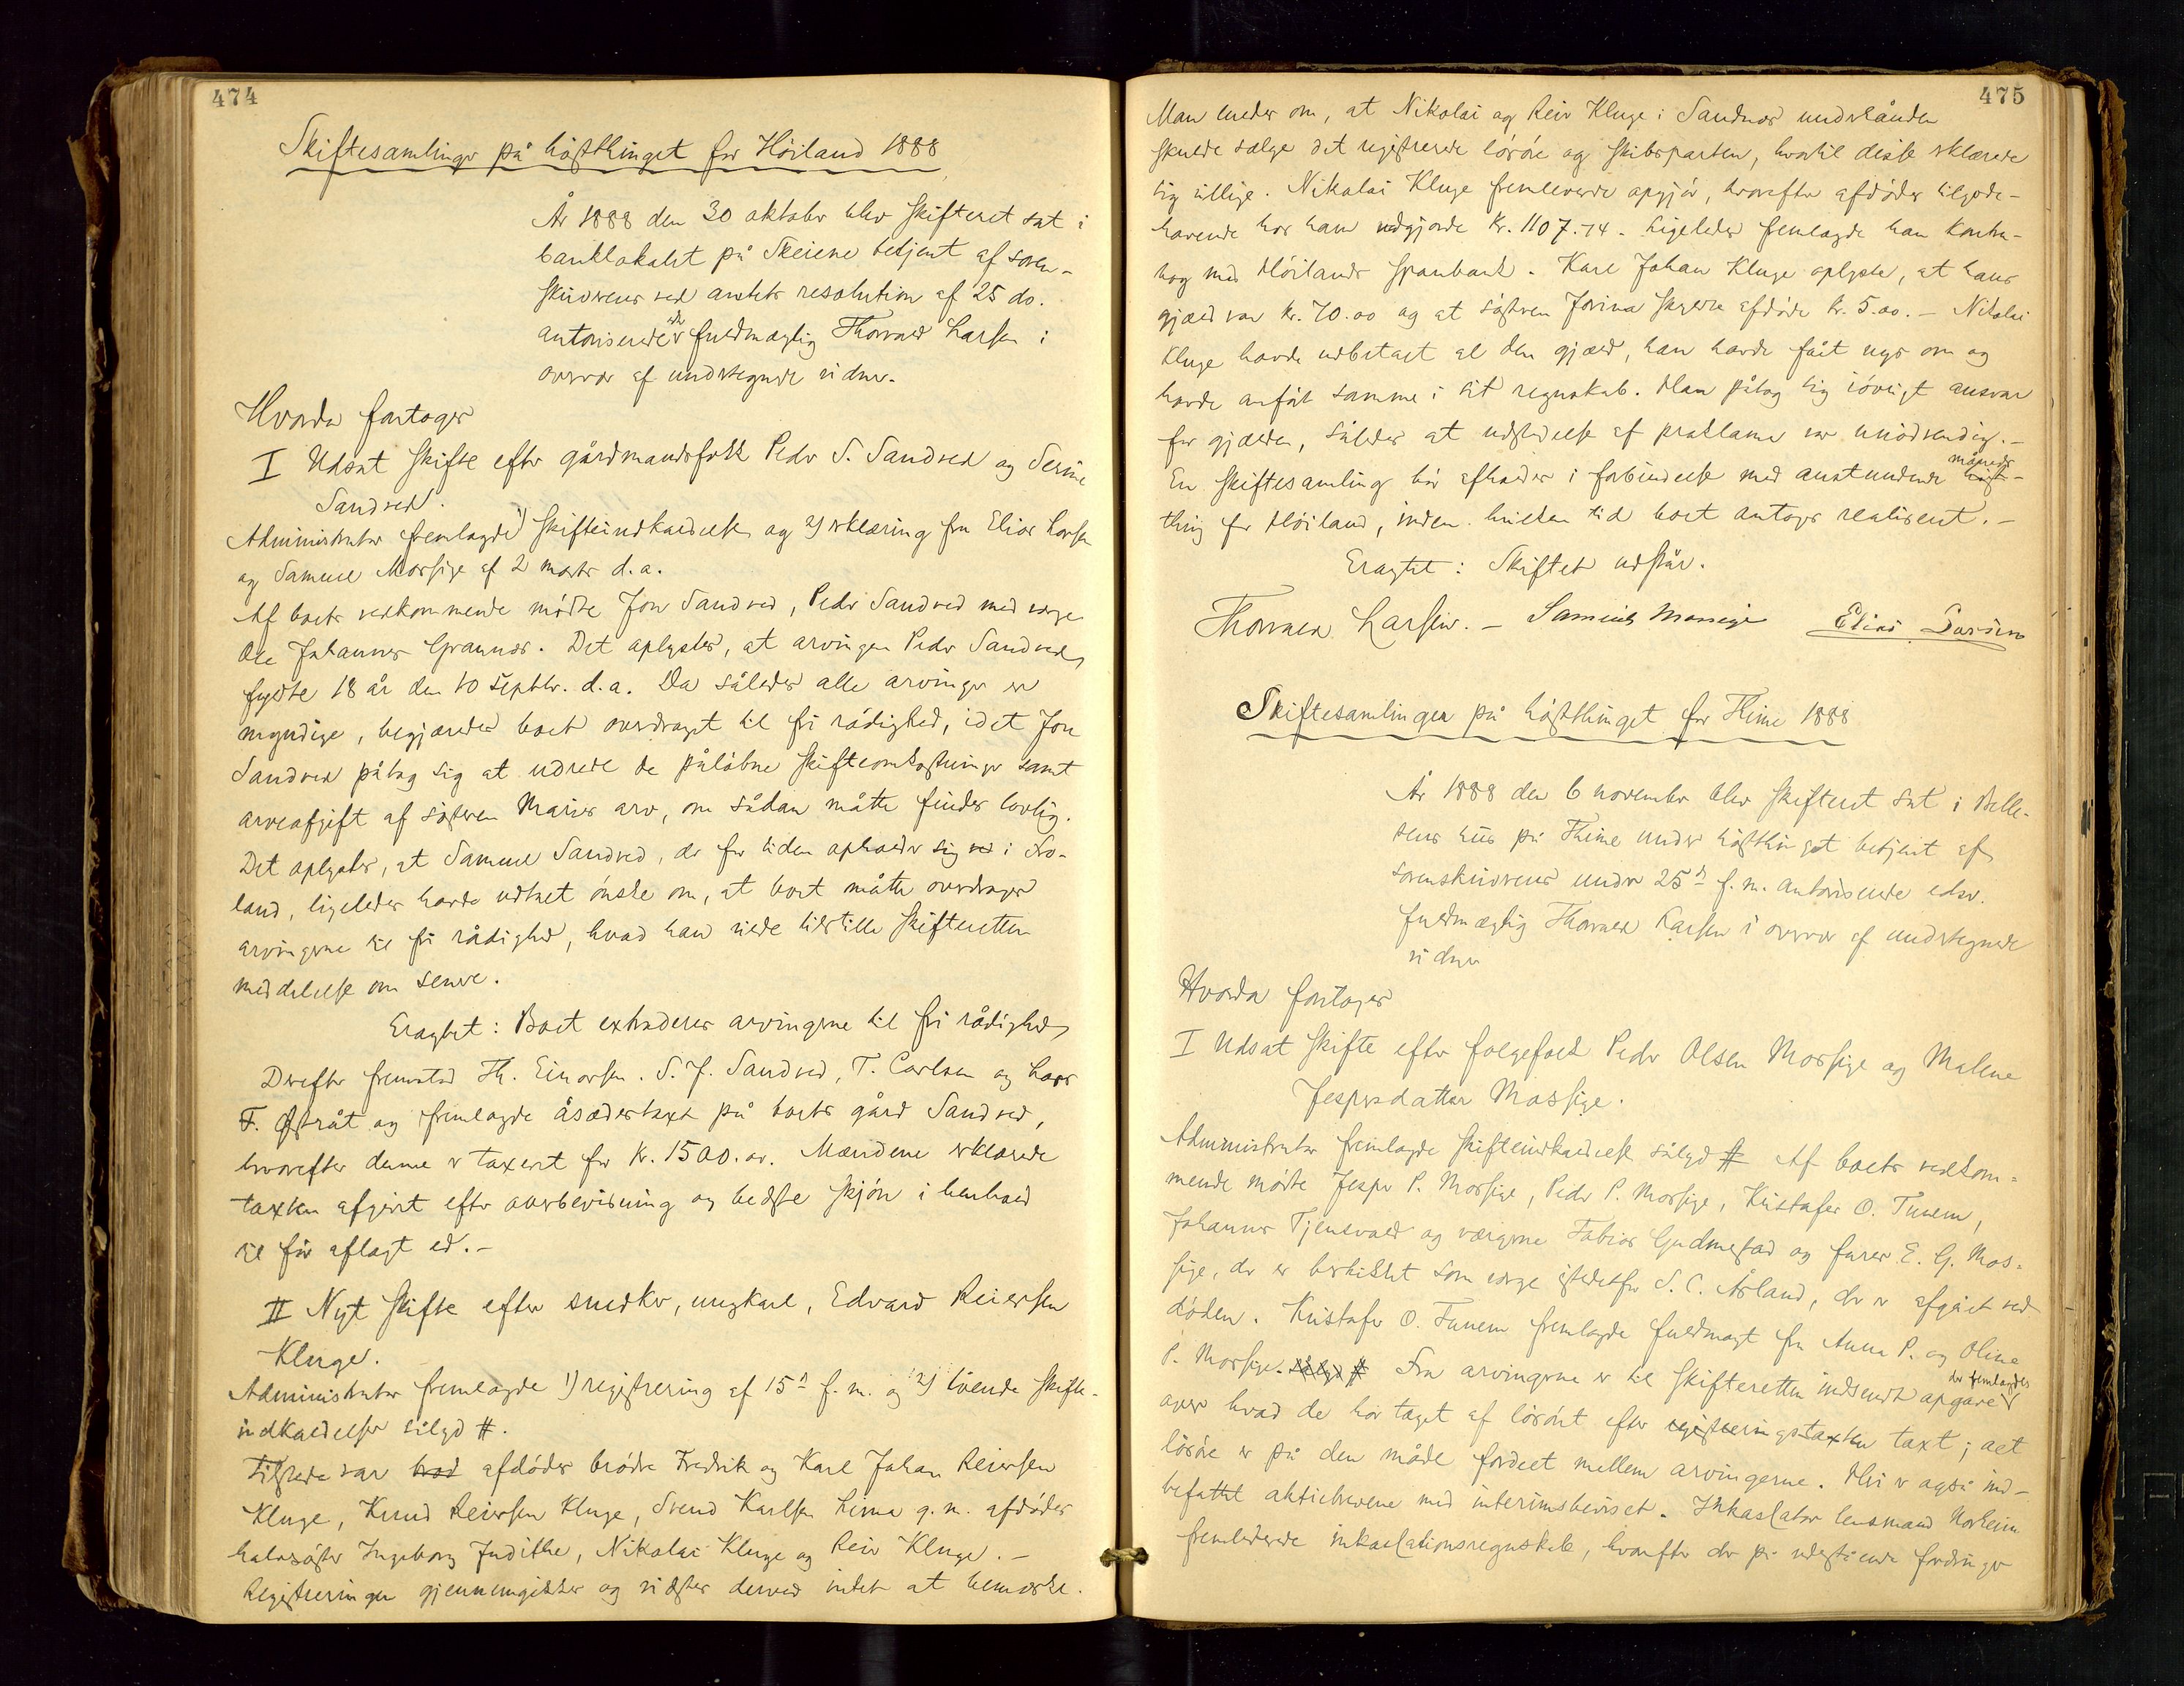 474
Skiftesamlinger på høstthinget for Høiland 1888
År 1888 den 30 oktober blev skifteret sat i
banklokalet på Skeiene betjent af soren-
skriverens ved amtets resolution af 25 do.
autoriserede edsv fuldmægtig Thorvald Larsen i
overvær af undertegnede vidner.
Hvorda foretoges
I Udsat skifte efter gårdmandsfolk Peder S. Sandved og Serine
Sandved.
Administrator fremlagde 1) skifteindkaldelse og 2) erklæring fra Elias Larsen
og Samuel Mossige af 2 marts d.a.
Af boets vedkommende mødte Jon Sandved, Peder Sandved med verge
Ole Johannes Grannes. Det oplystes, at arvingen Peder Sandved
fyldte 18 år den 10 septbr. d.a. Da således alle arvinger er
myndige, begjæredes boet overdraget til fri rådighed, idet Jon
Sandved påtog sig at udrede de påløbne skifteomkostninger samt
arveafgift af søsteren Maries arv, om sådan måtte findes lovlig.
Det oplystes, at Samuel Sandved, der for tiden opholder sig ved i
land, ligeledes havde udtalt ønske om, at boet måtte overdrages
arvingerne til fri rådighed, hvad han vilde tilstille skifteretten
meddelelse om senere.
Eragtet: Boet extraderes arvingerne til fri rådighed
Derefter fremstod Th. Einarsen. S. J. Sandved, T. Carlsen og Lars
T. Østråt og fremlagde åsædestaxt på boets gård Sandved,
hvorefter denne er taxeret for Kr. 1500.00. Mændene erklærede
taxten afgivet efter overbevisning og bedste skjøn i henhold
til før aflagt ed. -
II Nyt skifte efter snedker, ungkarl, Edvard Reiersen
Kluge.
Administrator fremlagde 1) registrering af 15de f. m. og 2) tvende skifte-
indkaldelser sålyd #.
Tilstede var afdødes brødre Fredrik og Karl Johan Reiersen
Kluge, Knud Reiersen Kluge, Svend Karlsen Lima g. m. afdødes
halvsøster Ingeborg Judithe, Nikolai Kluge og Reier Kluge. -
Registreringen gjennemgikkes og vidstes derved intet at bemærke.
475
Man enedes om, at Nikolai og Reier Kluge i Sandnes underhånden
skulde sælge det registrerede løsøre og skibsparten, hvortil disse erklærede
sig villige. Nikolai Kluge fremleverede opgjør, hvorefter afdødes tilgode-
havende hos ham udgjorde Kr. 1107.74. Ligeledes fremlagde han kontra-
bog med Høilands sparebank. Karl Johan Kluge oplyste, at hans
gjæld var Kr. 70.00 og at søsteren Jorina skyldte afdøde Kr. 5.00. - Nikolai
Kluge havde udbetalt al den gjæld, han havde fået nys om og
havde anført samme i sit regnskab. Han påtog sig iøvrigt ansvar
for gjælden, således at udstedelse af proklama var unødvendig. -
En skiftesamling bør afholdes i forbindelse med anstundende høst- måneds
thing for Høiland, inden hvilken tid boet antages realiseret. -
Eragtet: Skiftet udstår.
Thorvald Larsen. - Samuel Mossige Elias Larsen
Skiftesamlinger på høstthinget for Thime 1888
År 1888 den 6 november blev skifteret sat i
hus på Thime under høstthinget betjent af
sorenskriverens under 25de f. m. autoriserede edsv.
fuldmægtig Thorvald Larsen i overvær af undertegnede
vidner
Hvorda foretoges
I Udsat skifte efter folgefolk Peder Olsen Mossige og Malene
Jespersdatter Mossige.
Administrator fremlagde skifteindkaldelse sålyd # Af boets vedkom-
mende mødte Jesper P. Mossige, Peder P. Mossige, Kristofer O. Tunem,
Johannes Tjensvold og værgerne Tobias Gudmestad og E. G. Mos-
sige, der er beskikket som verge istedetfor S. C. Årland, der er afgået ved
døden. Kristofer O. Tunem fremlagde fuldmagt fra Anna P. og Oline
P. Mossige. sålyd # Fra arvingerne er til skifteretten indsendt opgave der fremlagdes
over hvad de har taget af løsøret efter registreringstaxten taxt; alt
løsøre er på den måde fordelt mellem arvingerne. Heri er også ind-
befattet aktiebrevene med interimsbeviset. Inkassator lensmand Norheim
fremleverede inkassationsregnskab, hvorefter der på udestående fordringer